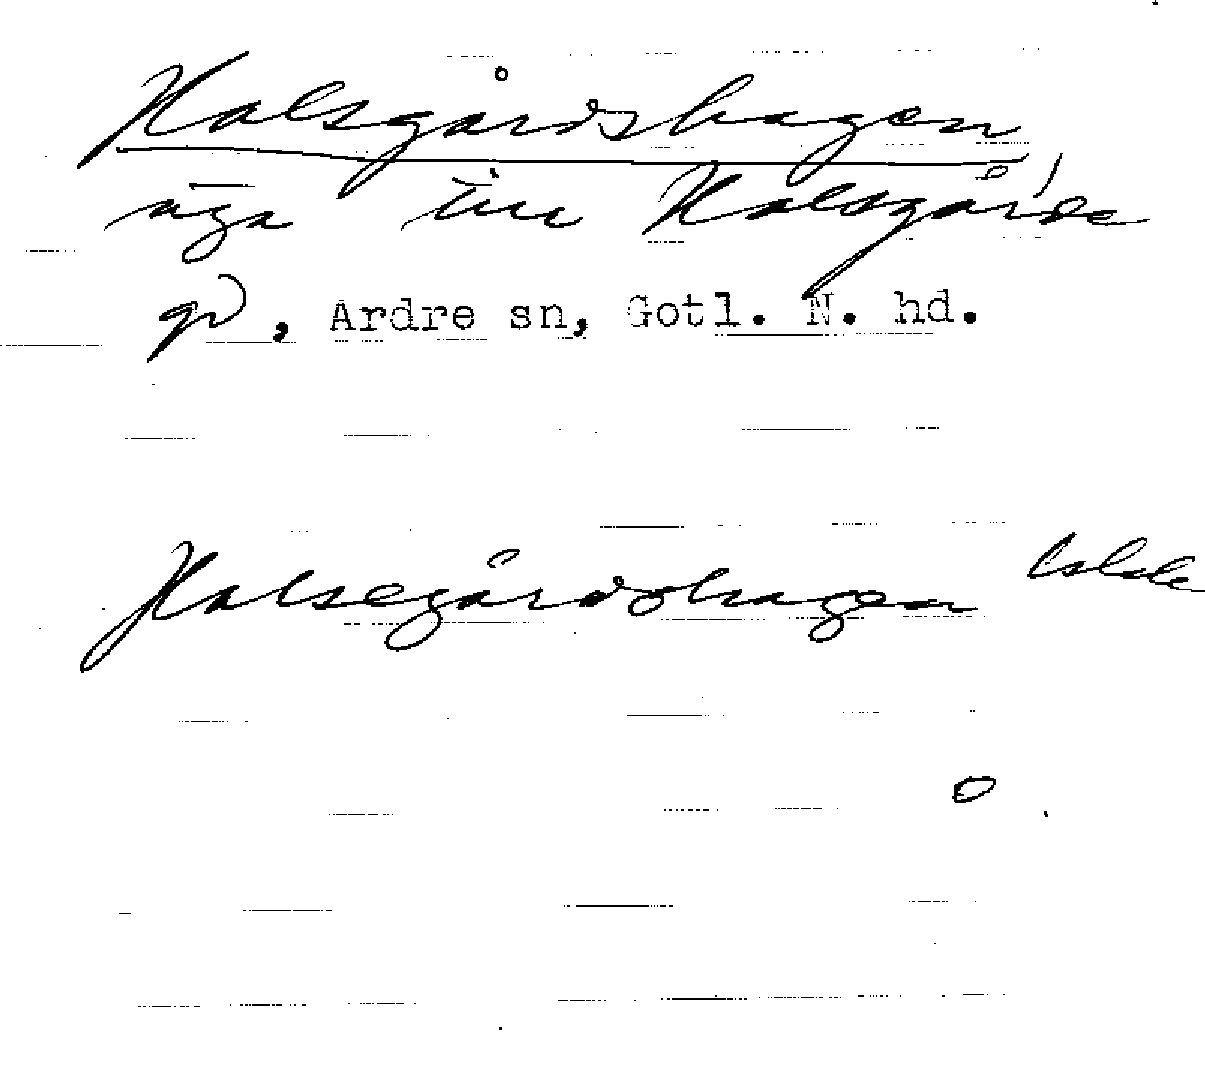 Halsgårdshagen
äga till Halsgårda
gd, Ardre sn, Gotl. N. hd.
Halsegårdshagen